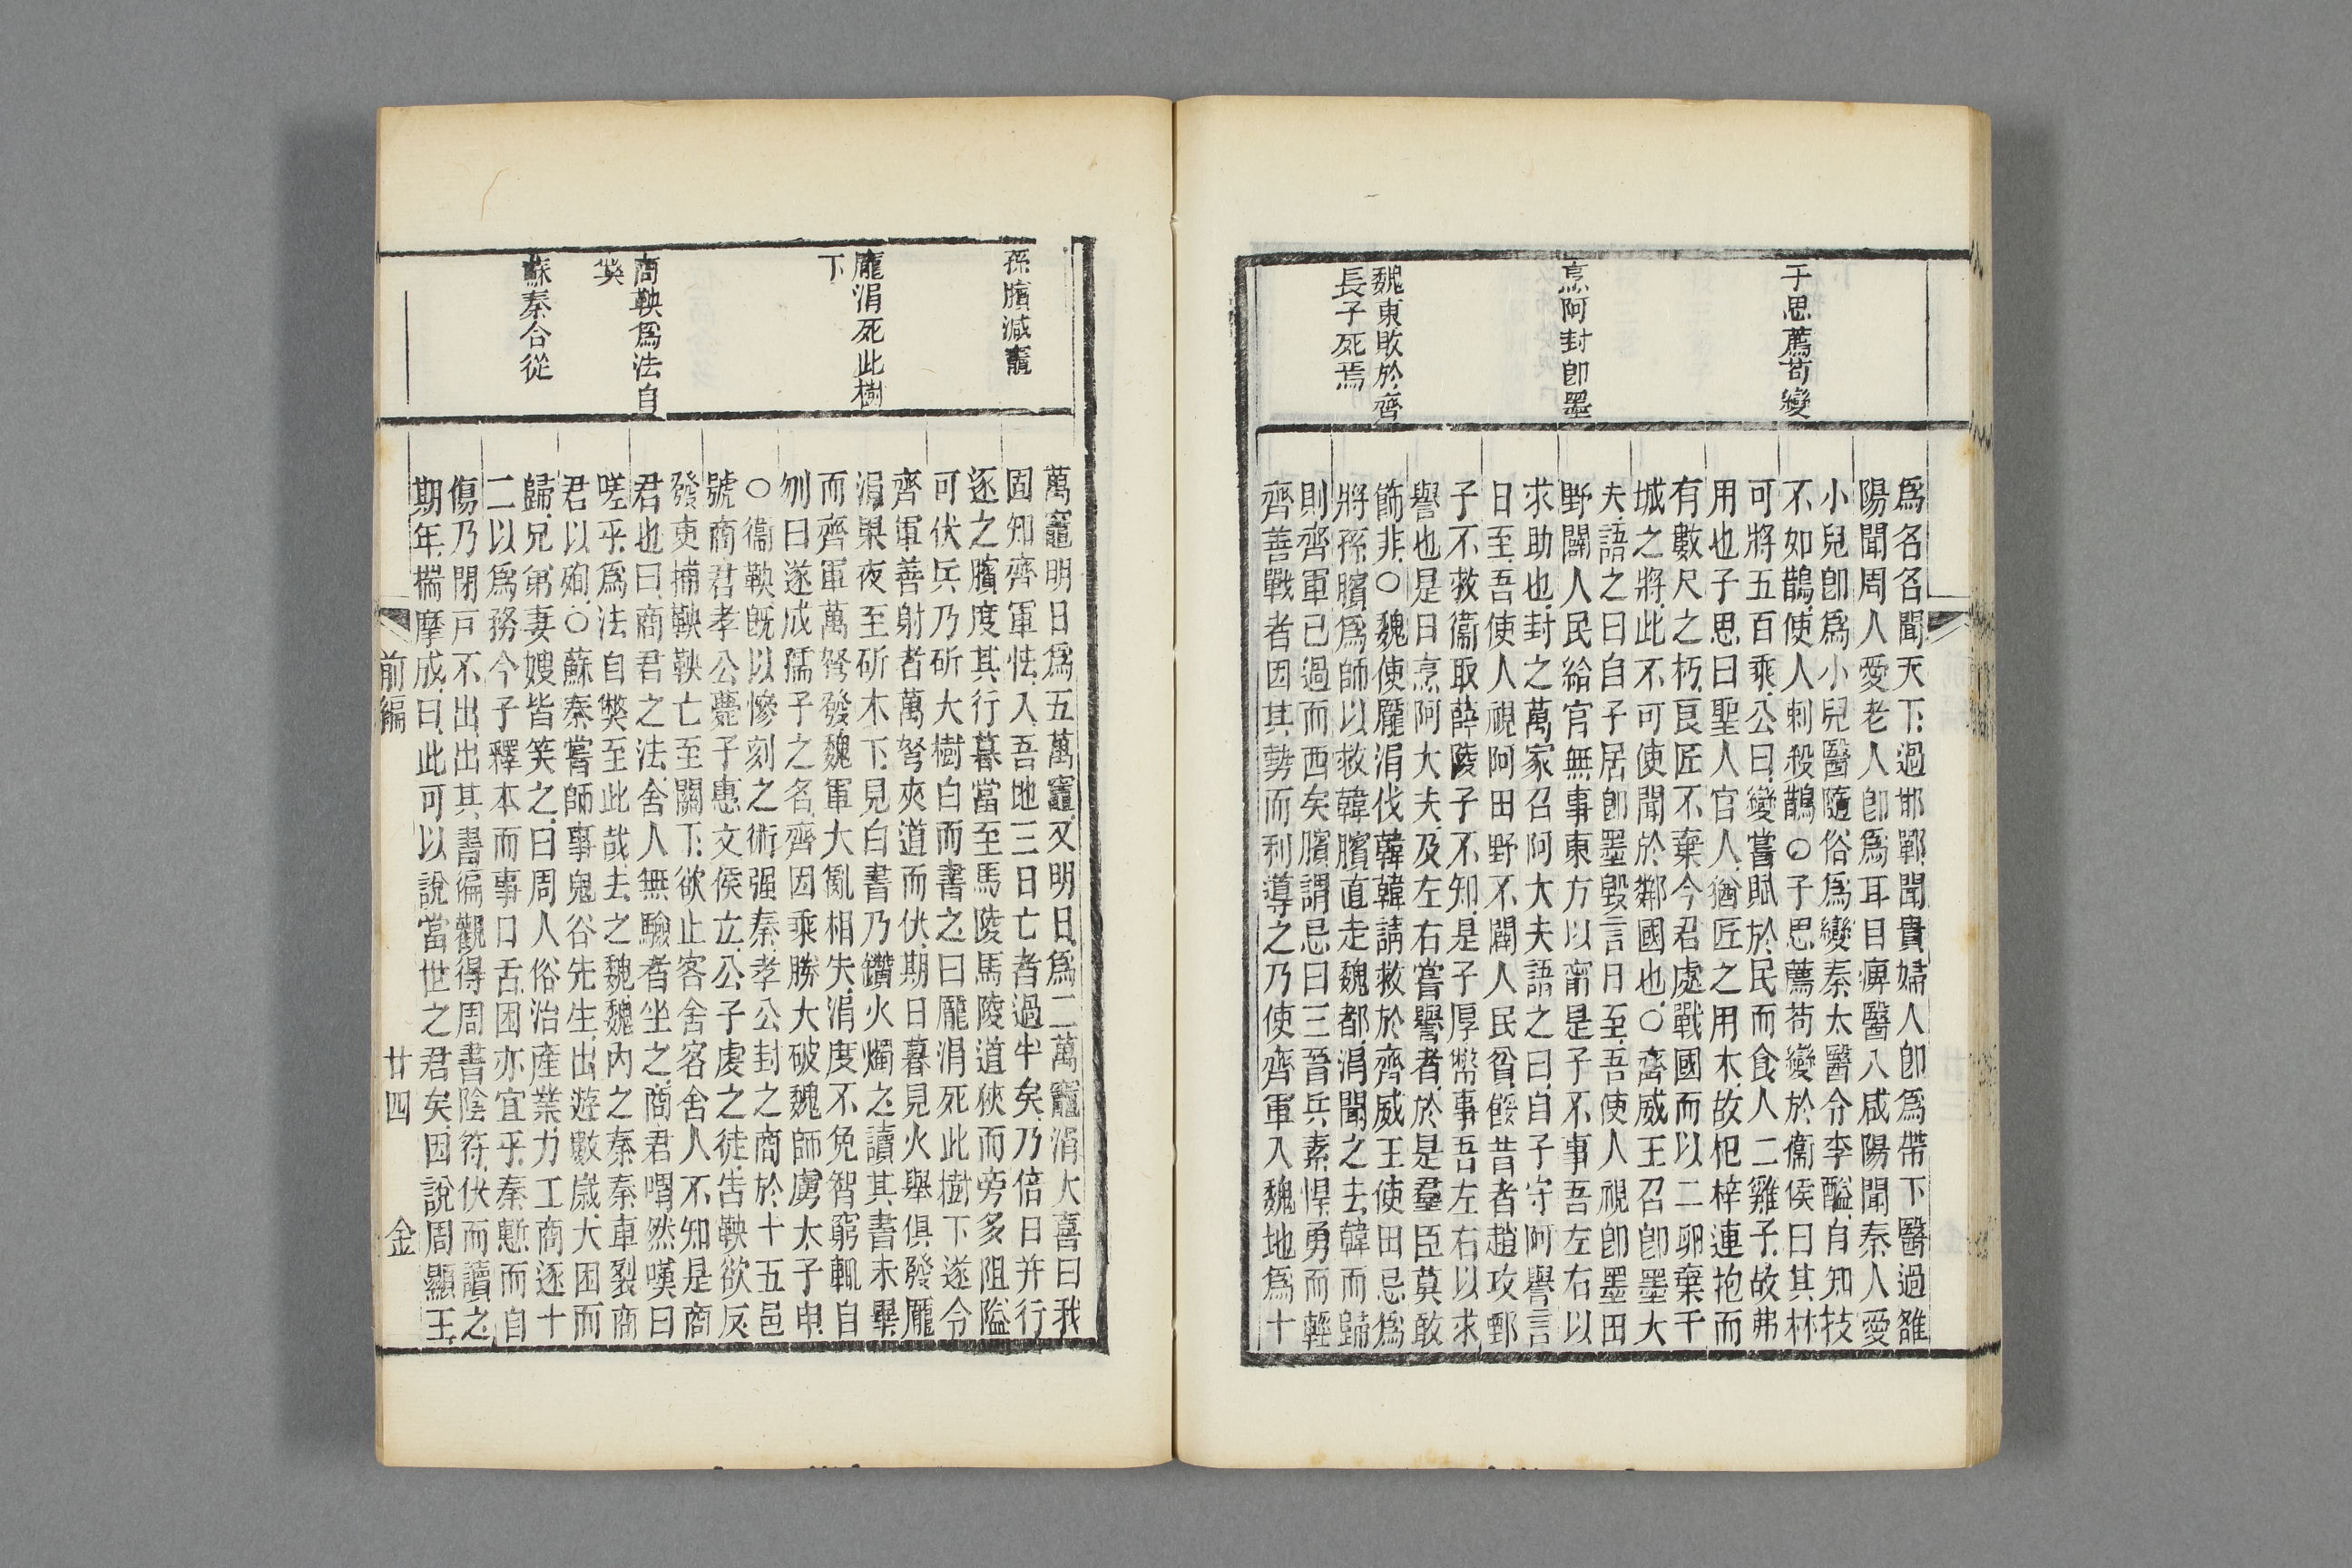 子思薦苟變
烹阿封卽墨
魏東敗於齊
長子死焉
爲名名聞天下過邯鄲聞貴婦人卽爲帶下醫過雒
陽聞周人愛老人卽爲耳目痹醫入咸陽聞秦人愛
小兒卽爲小兒醫隨俗爲變秦太醫令李醯自知技
不如鵲使人刺殺鵲○子思薦苟變於衞侯曰其材
可將五百乘公曰變嘗賦於民而食人二雞子故弗
用也子思曰聖人官人猶匠之用木故杞梓連抱而
有數尺之朽良匠不棄今君處戰國而以二卵棄干
城之將此不可使聞於鄰國也○齊威王召卽墨大
夫語之曰自子居卽墨毀言日至吾使人視卽墨田
野闢人民給官無事東方以甯是子不事吾左右以
求助也封之萬家召阿大夫語之曰自子守阿譽言
日至吾使人視阿田野不闢人民貧餒昔者趙攻鄄
子不救衞取薛陵子不知是子厚幣事吾左右以求
譽也是日烹阿大夫及左右嘗譽者於是羣臣莫敢
飾非○魏使龐涓伐韓韓請救於齊威王使田忌爲
將孫臏爲師以救韓臏直走魏都涓聞之去韓而歸
則齊軍已過而西矣臏謂忌曰三晉兵素悍勇而輕
齊善戰者因其勢而利導之乃使齊軍入魏地爲十
孫臏減竈
龐涓死此樹
下
商鞅爲法自
獘
蘇秦合從
萬竈明日爲五萬竈又明日爲二萬竈涓大喜曰我
固知齊軍怯入吾地三日亡者過半矣乃倍日并行
逐之臏度其行暮當至馬陵馬陵道狹而旁多阻隘
可伏兵乃斫大樹白而書之曰龐涓死此樹下遂令
齊軍善射者萬弩夾道而伏期日暮見火舉俱發龐
涓果夜至斫木下見白書乃鑽火燭之讀其書未畢
而齊軍萬弩發魏軍大亂相失涓度不免智窮輒自
刎曰遂成孺子之名齊因乘勝大破魏師虜太子申
○衞鞅旣以慘刻之術强秦孝公封之商於十五邑
號商君孝公薨子惠文侯立公子虔之徒吿鞅欲反
發吏捕鞅鞅亡至關下欲止客舍客舍人不知是商
君也曰商君之法舍人無驗者坐之商君喟然嘆曰
嗟乎爲法自獘至此哉去之魏魏內之秦秦車裂商
君以殉○蘇秦嘗師事鬼谷先生出遊數歲大困而
歸兄弟妻嫂皆笑之曰周人俗治產業力工商逐十
二以爲務今子釋本而事口舌困亦宜乎秦慙而自
傷乃閉戸不出出其書徧觀得周書陰符伏而讀之
期年揣摩成曰此可以說當世之君矣因說周顯王
前編
廿四
金